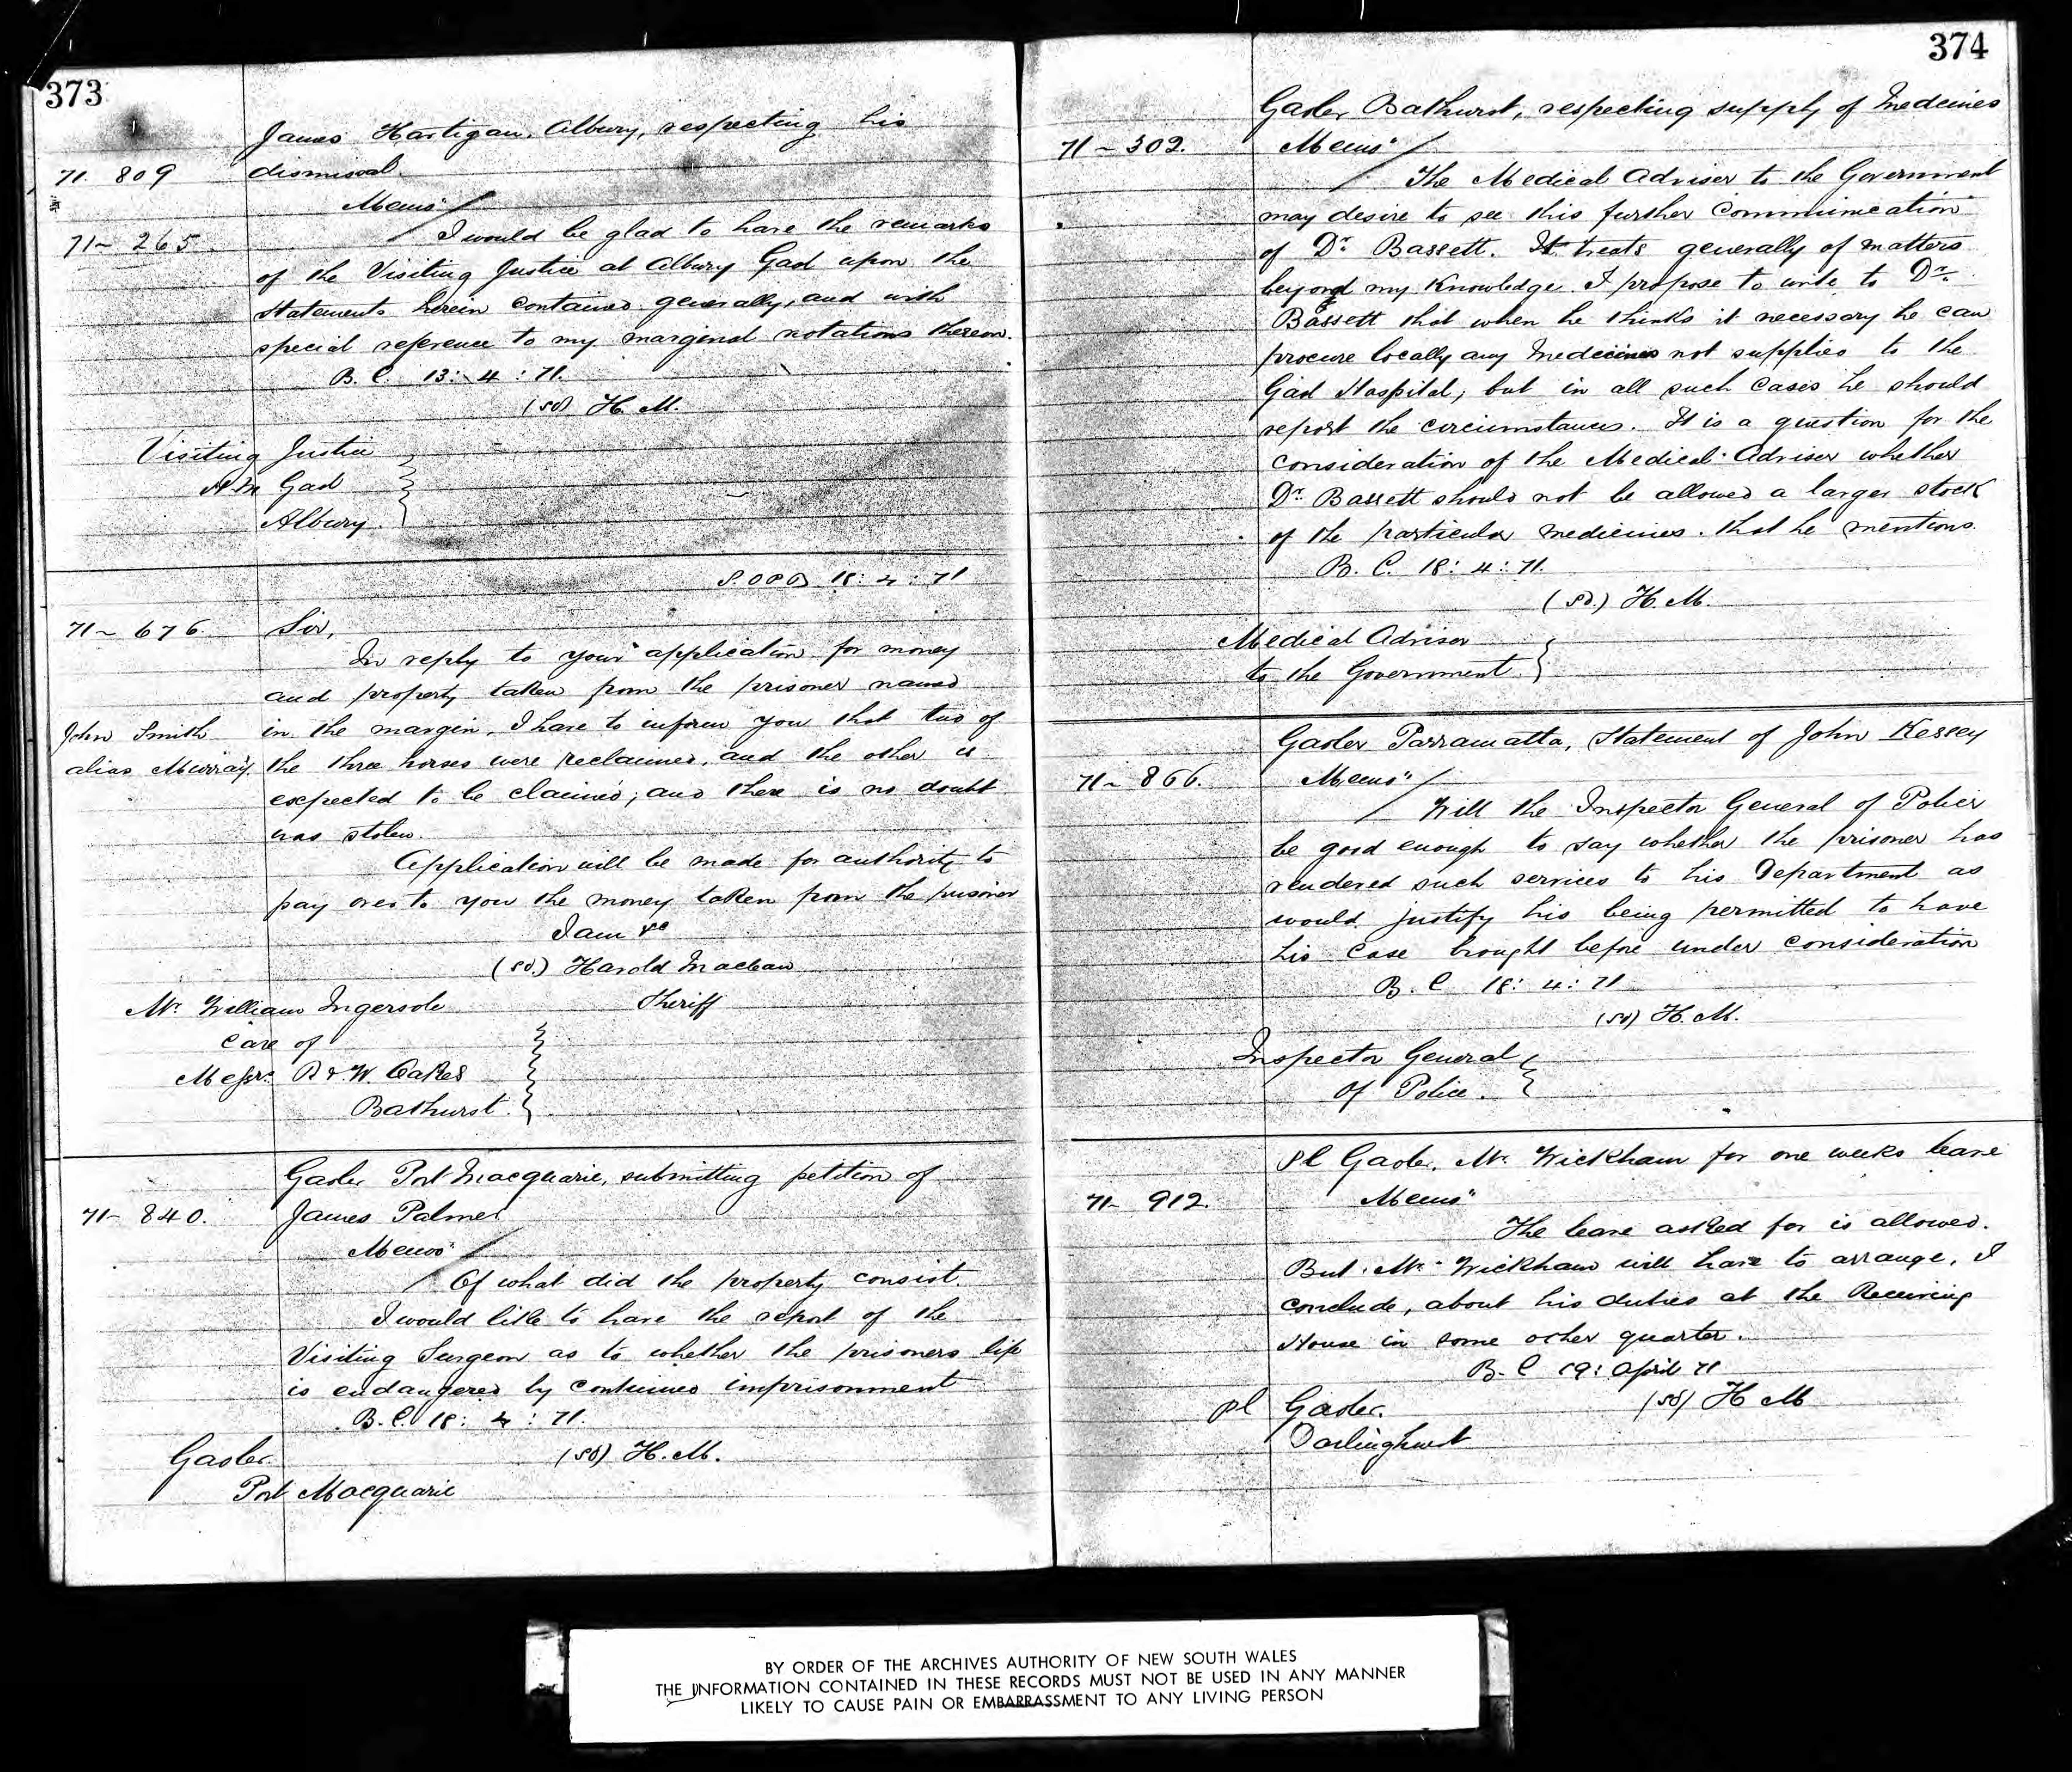 373
James Hartigan, Albury, respecting his
71. 809 dismissal.
Memo
71~ 265 I would be glad to have the remarks
of the Visiting Justice at Albury Gaol upon the
statements herein contained generally, and with
special reference to my marginal notations thereon.
B. C. 13: 4: 71.
(sd) H. M.
Visiting Justice
H.M. Gaol
Albury.
18: 4: 71
71~ 676. Sir,
In reply to your application for money
and property taken from the prisoner named
John Smith in the margin, I have to inform you that two of
alias Murray. the three horses were reclaimed, and the other is
expected to be claimed; and there is no doubt
was stolen.
Application will be made for authority to
pay over to you the money taken from the prisoner
I am &c
(sd.) Harold Maclean
Mr. William Ingersole Sheriff
Care of
Messrs. R & W. Oakes
Bathurst.
Gaoler Port Macquarie, submitting petition of
71- 840. James Palmer
Memo
Of what did the property consist.
I would like to have the report of the
Visiting Surgeon as to whether the prisoners life
is endangered by continued imprisonment
B. C. 18: 4: 71.
Gaoler (sd) H. M.
Port Macquarie
374
Gaoler Bathurst, respecting supply of Medecines
71~302. Memo
The Medical Adviser to the Government
may desire to see this further communication
of Dr. Bassett. It treats generally of matters
beyond my Knowledge. I propose to write to Dr.
Bassett that when he thinks it necessary he can
procure locally any Medecines not supplied to the
Gaol Hospital; but in all such cases he should
report the circumstances. It is a question for the
consideration of the Medical Adviser whether
Dr. Bassett should not be allowed a larger stock
of the particular medicines that he mentions.
B. C. 18: 4: 71.
(sd.) H. M.
Medical Adviser
to the Government.
Gaoler Parramatta, Statement of John Kessey
71~ 866. Memo
Will the Inspector General of Police
be good enough to say whether the prisoner has
rendered such services to his Department as
would justify his being permitted to have
his case brought before under consideration
B. C 18: 4: 71
(sd) H. M.
Inspector General
of Police.
Pl Gaoler, Mr. Wickham for one weeks leave
71~ 912. Memo
The leave asked for is allowed.
But Mr. Wickham will have to arrange, I
conclude, about his duties at the Receiving
House in some other quarter.
B. C 19: April 71
Pl Gaoler. (sd) H M
Darlinghurst
BY ORDER OF THE ARCHIVES AUTHORITY OF NEW SOUTH WALES
THE INFORMATION CONTAINED IN THESE RECORDS MUST NOT BE USED IN ANY MANNER
LIKELY TO CAUSE PAIN OR EMBARRASSMENT TO ANY LIVING PERSON